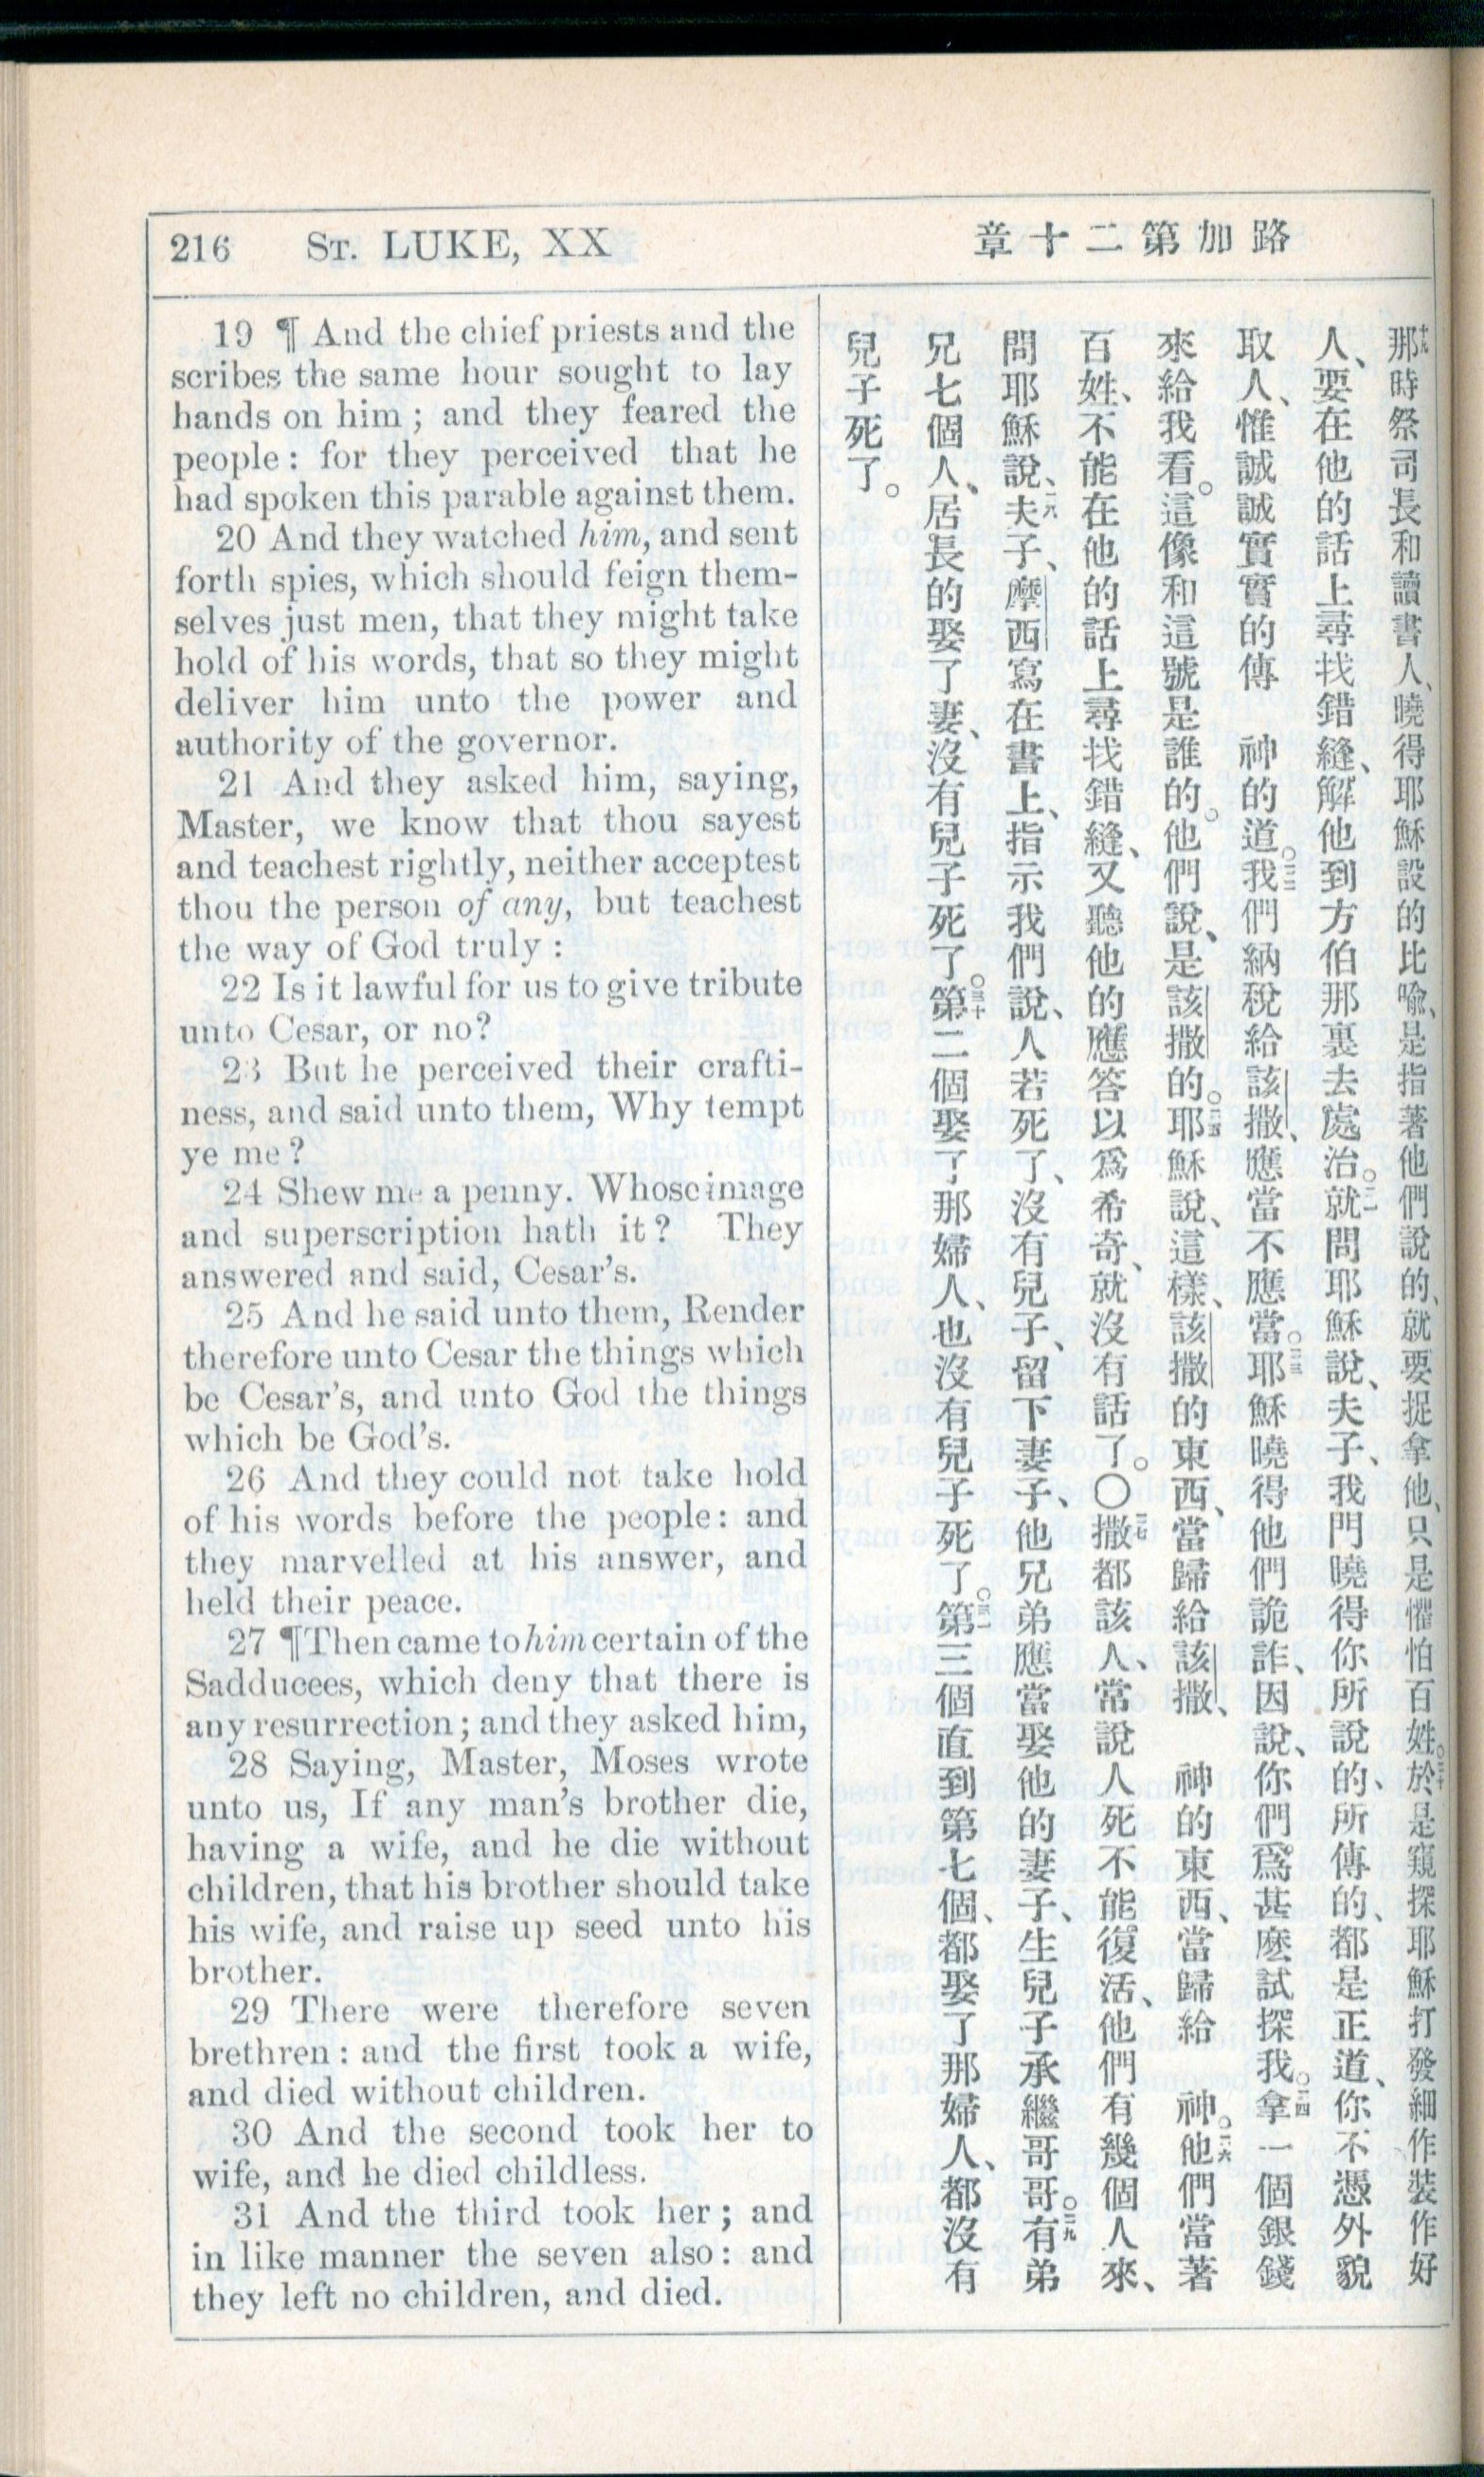 216 ST. LUKE, XX
章十二第加路
19 ¶ And the chief priests and the
scribes the same hour sought to lay
hands on him ; and they feared the
people : for they perceived that he
had spoken this parable against them.
20 And they watched him, and sent
forth spies, which should feign them-
selves just men, that they might take
hold of his words, that so they might
deliver him unto the power and
authority of the governor.
21 And they asked him, saying,
Master, we know that thou sayest
and teachest rightly, neither acceptest
thou the person of any, but teachest
the way of God truly :
22 Is it lawful for us to give tribute
unto Cesar, or no?
23 But he perceived their crafti-
ness, and said unto them, Why tempt
ye me ?
24 Shew me a penny. Whose image
and superscription hath it ? They
answered and said, Cesar's.
25 And he said unto them, Render
therefore unto Cesar the things which
be Cesar's, and unto God the things
which be God's.
26 And they could not take hold
of his words before the people : and
they marvelled at his answer, and
held their peace.
27 ¶ Then came to him certain of the
Sadducees, which deny that there is
any resurrection ; and they asked him,
28 Saying, Master, Moses wrote
unto us, If any man's brother die,
having a wife, and he die without
children, that his brother should take
his wife, and raise up seed unto his
brother.
29 There were therefore seven
brethren : and the first took a wife,
and died without children.
30 And the second took her to
wife, and he died childless.
31 And the third took her ; and
in like manner the seven also : and
they left no children, and died.
十九那時祭司長和讀書人、曉得耶穌設的比喩、是指著他們說的、就要捉拿他、只是懼怕百姓。○二十於是窺探耶穌打發細作裝作好
人、要在他的話上尋找錯縫、解他到方伯那裏去處治。○二一就問耶穌說、夫子、我門曉得你所說的、所傳的、都是正道、你不憑外貌
取人、惟誠誠實實的傳 神的道。○二二我們納稅給該撒、應當不應當。○二三耶穌曉得他們詭詐、因說、你們爲甚麽試探我。○二四拿一個銀錢
來給我看。這像和這號是誰的。他們說、是該撒的。○二五耶穌說、這樣、該撒的東西、當歸給該撒、 神的東西、當歸給 神。○二六他們當著
百姓、不能在他的話上尋找錯縫、又聽他的應答以爲希奇、就沒有話了。〇二七撒都該人、常說人死不能復活、他們有幾個人來、
問耶穌說、二八夫子、摩西寫在書上、指示我們說、人若死了、沒有兒子、留下妻子、他兄弟應當娶他的妻子、生兒子承繼哥哥。○二九有弟
兄七個人、居長的娶了妻、沒有兒子死了。○三十第二個娶了那婦人、也沒有兒子死了。○三一第三個直到第七個、都娶了那婦人、都沒有
兒子死了。